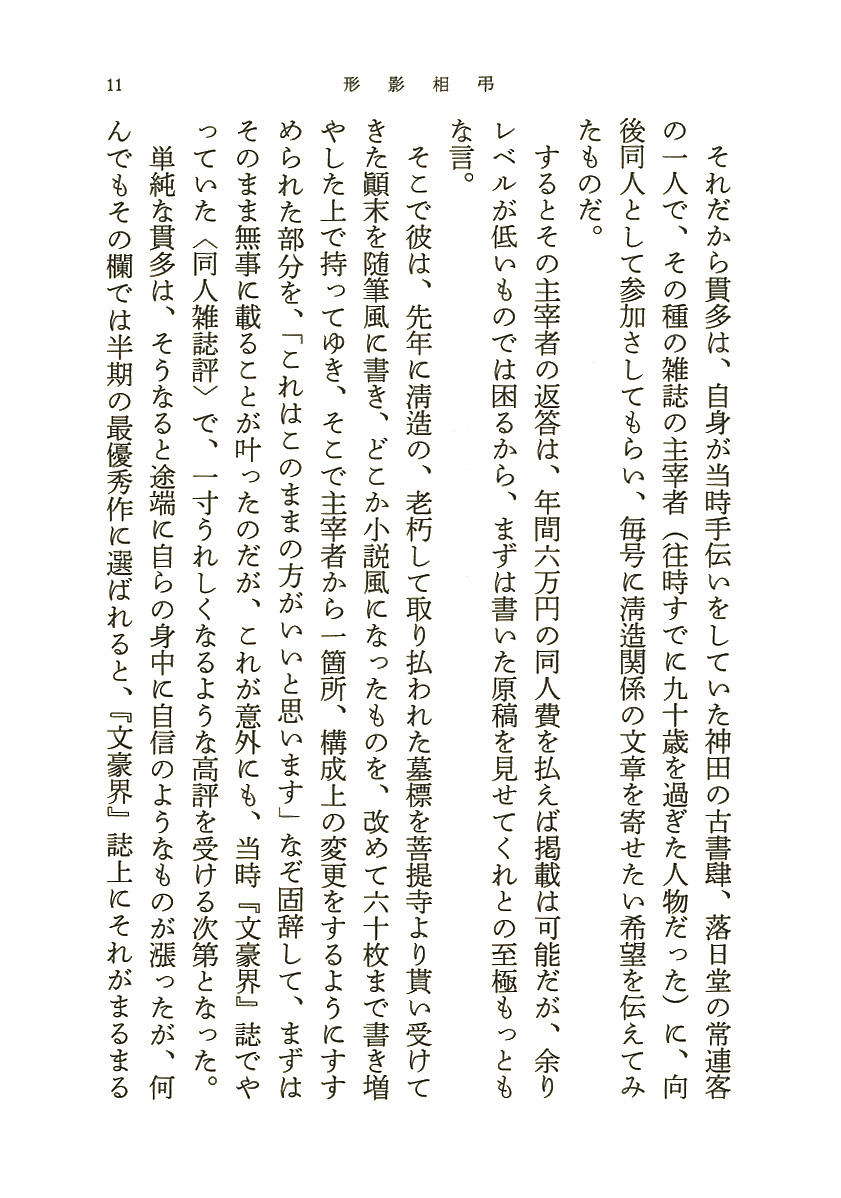 11
形影相弔
それだから貫多は、自身が当時手伝いをしていた神田の古書肆、落日堂の常連客
の一人で、その種の雑誌の主宰者（往時すでに九十歳を過ぎた人物だった）に、向
後同人として参加さしてもらい、毎号に淸造関係の文章を寄せたい希望を伝えてみ
たものだ。
するとその主宰者の返答は、年間六万円の同人費を払えば掲載は可能だが、余り
レベルが低いものでは困るから、まずは書いた原稿を見せてくれとの至極もっとも
な言。
そこで彼は、先年に淸造の、老朽して取り払われた墓標を菩提寺より貰い受けて
きた顚末を随筆風に書き、どこか小説風になったものを、改めて六十枚まで書き増
やした上で持ってゆき、そこで主宰者から一箇所、構成上の変更をするようにすす
められた部分を、「これはこのままの方がいいと思います」なぞ固辞して、まずは
そのまま無事に載ることが叶ったのだが、これが意外にも、当時『文豪界』誌でや
っていた〈同人雑誌評〉で、一寸うれしくなるような高評を受ける次第となった。
単純な貫多は、そうなると途端に自らの身中に自信のようなものが漲ったが、何
んでもその欄では半期の最優秀作に選ばれると、『文豪界』誌上にそれがまるまる